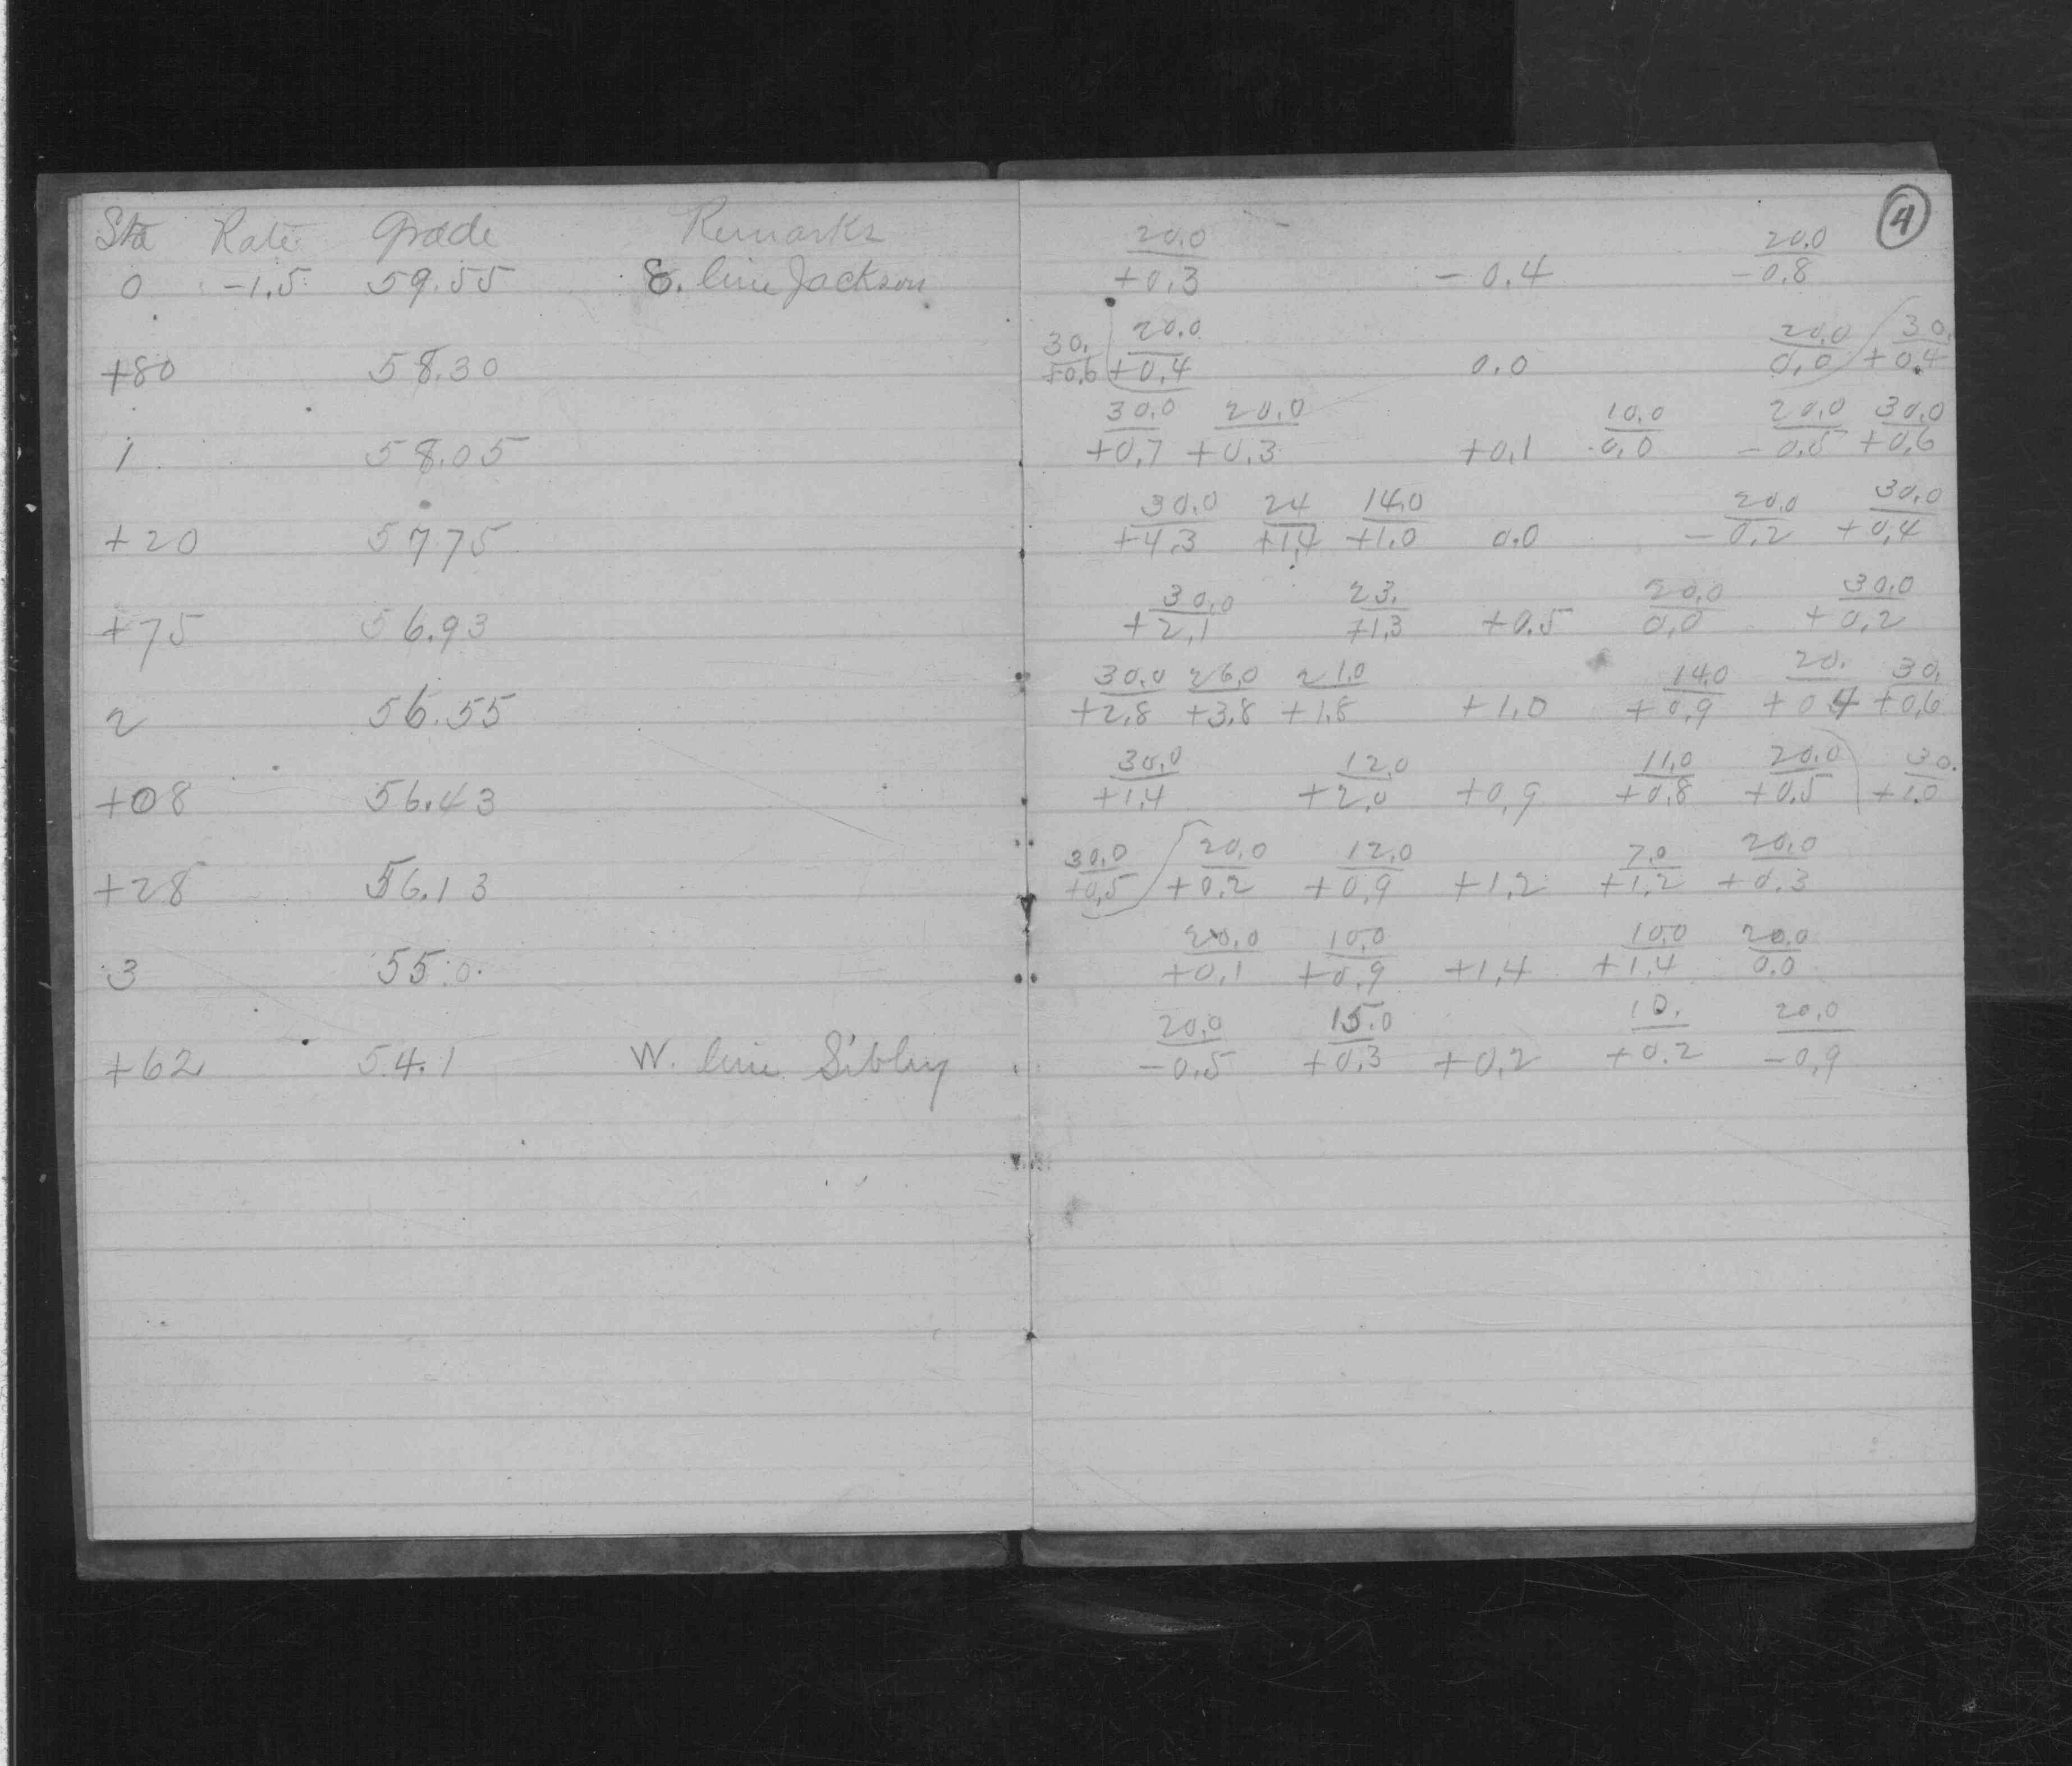 Sta Rate Grade Remarks
0 -1.5 59.55 E. line Jackson
+80 58.30
1 58.05
+20 57.75
+75 56.93
2 56.55
+08 56.43
+28 56.13
3 55.0
+62 54.1 W. line Sibley
4
20.0 20.0
+0.3 -0.4 -0.8
30. 20.0 20.0 30.
+0.6 +0.4 0.0 0.0 +0.4
30.0 20.0 10.0 20.0 30.0
+0.7 +0.3 +0.1 0.0 -0.5 +0.6
30.0 24 14.0 20.0 30.0
+4.3 +1.4 +1.0 0.0 -0.2 +0.4
30.0 23. 20.0 30.0
+2.1 +1.3 +0.5 0.0 +0.2
30.0 26.0 21.0 14.0 20. 30.
+2.8 +3.8 +1.8 +1.0 +0.9 +0.4 +0.6
30.0 12.0 11.0 20.0 30.
+1.4 +2.0 +0.9 +0.8 +0.5 +1.0
30.0 20.0 12.0 7.0 20.0
+0.5 +0.2 +0.9 +1.2 +1.2 +0.3
20.0 10.0 10.0 20.0
+0.1 +0.9 +1.4 +1.4 0.0
20.0 15.0 10. 20.0
-0.5 +0.3 +0.2 +0.2 -0.9